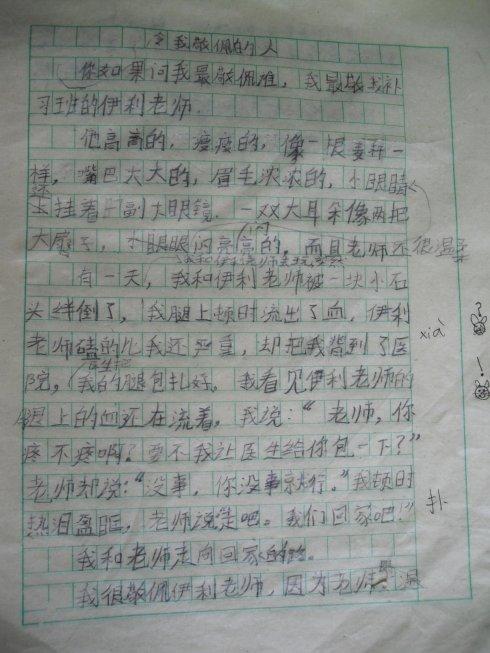 令我敬佩的人
你如果问我最敬佩谁，我最敬我补
习班的伊利老师.
他高高的，瘦瘦的，像一根麦秆一
样，嘴巴大大的，眉毛浓浓的，小眼睛
还
上挂着一副大眼镜.一双大耳朵像两把
大扇子，小眼眼闪亮亮的，而且老师还很温柔
我和伊利老师去玩突然
有一天，我和伊利老师被一块小石
头绊倒了，我腿上顿时流出了血，伊利
xià
老师磕的比我还严重，却把我背到了医
医生把
院，我的腿包扎好。我看见伊利老师的
腿上的血还在流着，我说：“老师，你
疼不疼啊？要不我让医生给你包一下？”
老师却说：“没事，你没事就行。”我顿时
扑
热泪盈眶，老师说走吧。我们回家吧！”
我和老师走向回家的路。
我很敬佩伊利老师，因为老师温